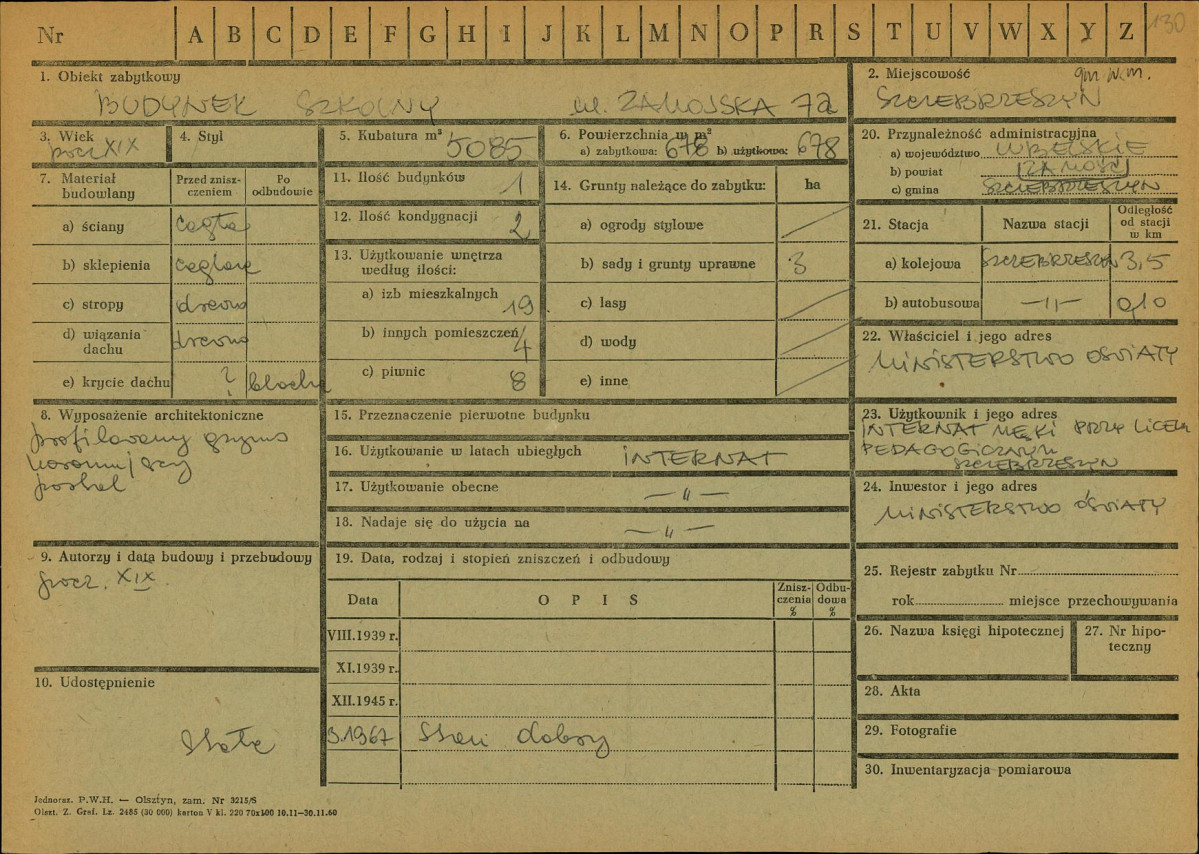 Nr A B C D E F G H I J K L M N O P R S T U V W X Y Z 130
1. Obiekt zabytkowy
BUDYNEK SZKOLNY ul. ZAMOJSKA 72
2. Miejscowość gm. w m.
SZCZEBRZESZYN
3. Wiek
pocz XIX
4. Styl
5. Kubatura m³ 5085
6. Powierzchnia w m²
a) zabytkowa: 678 b) użytkowa: 678
7. Materiał budowlany
Przed zniszczeniem
Po odbudowie
a) ściany cegła
b) sklepienia ceglane
c) stropy drewno
d) wiązania dachu drewno
e) krycie dachu ? blacha
8. Wyposażenie architektoniczne
profilowany gzyms
portal
9. Autorzy i data budowy i przebudowy
pocz. XIX.
10. Udostępnienie
stałe
11. Ilość budynków 1
12. Ilość kondygnacji 2
13. Użytkowanie wnętrza
według ilości:
a) izb mieszkalnych 19
b) innych pomieszczeń 4
c) piwnic 8
14. Grunty należące do zabytku: ha
a) ogrody stylowe
b) sady i grunty uprawne 3
c) lasy
d) wody
e) inne
15. Przeznaczenie pierwotne budynku
16. Użytkowanie w latach ubiegłych INTERNAT
17. Użytkowanie obecne —"—
18. Nadaje się do użycia na —"—
19. Data, rodzaj i stopień zniszczeń i odbudowy
Data O P I S Zniszczenia % Odbudowa %
VIII.1939 r.
XI.1939 r.
XII.1945 r.
3.1967 Stan dobry
20. Przynależność administracyjna
a) województwo LUBELSKIE
b) powiat ZAMOŚĆ
c) gmina SZCZEBRZESZYN
21. Stacja Nazwa stacji Odległość od stacji w km
a) kolejowa SZCZEBRZESZYN 3,5
b) autobusowa —"— 0,10
22. Właściciel i jego adres
MINISTERSTWO OŚWIATY
23. Użytkownik i jego adres
INTERNAT MĘSKI PRZY LICEUM
PEDAGOGICZNYM
SZCZEBRZESZYN
24. Inwestor i jego adres
MINISTERSTWO OŚWIATY
25. Rejestr zabytku Nr
rok miejsce przechowywania
26. Nazwa księgi hipotecznej
27. Nr hipoteczny
28. Akta
29. Fotografie
30. Inwentaryzacja pomiarowa
Jednoraz. P.W.H. — Olsztyn, zam. Nr 3215/S
Olszt. Z. Graf. Lz. 2485 (30 000) karton V kl. 220 70x100 10.11—30.11.60